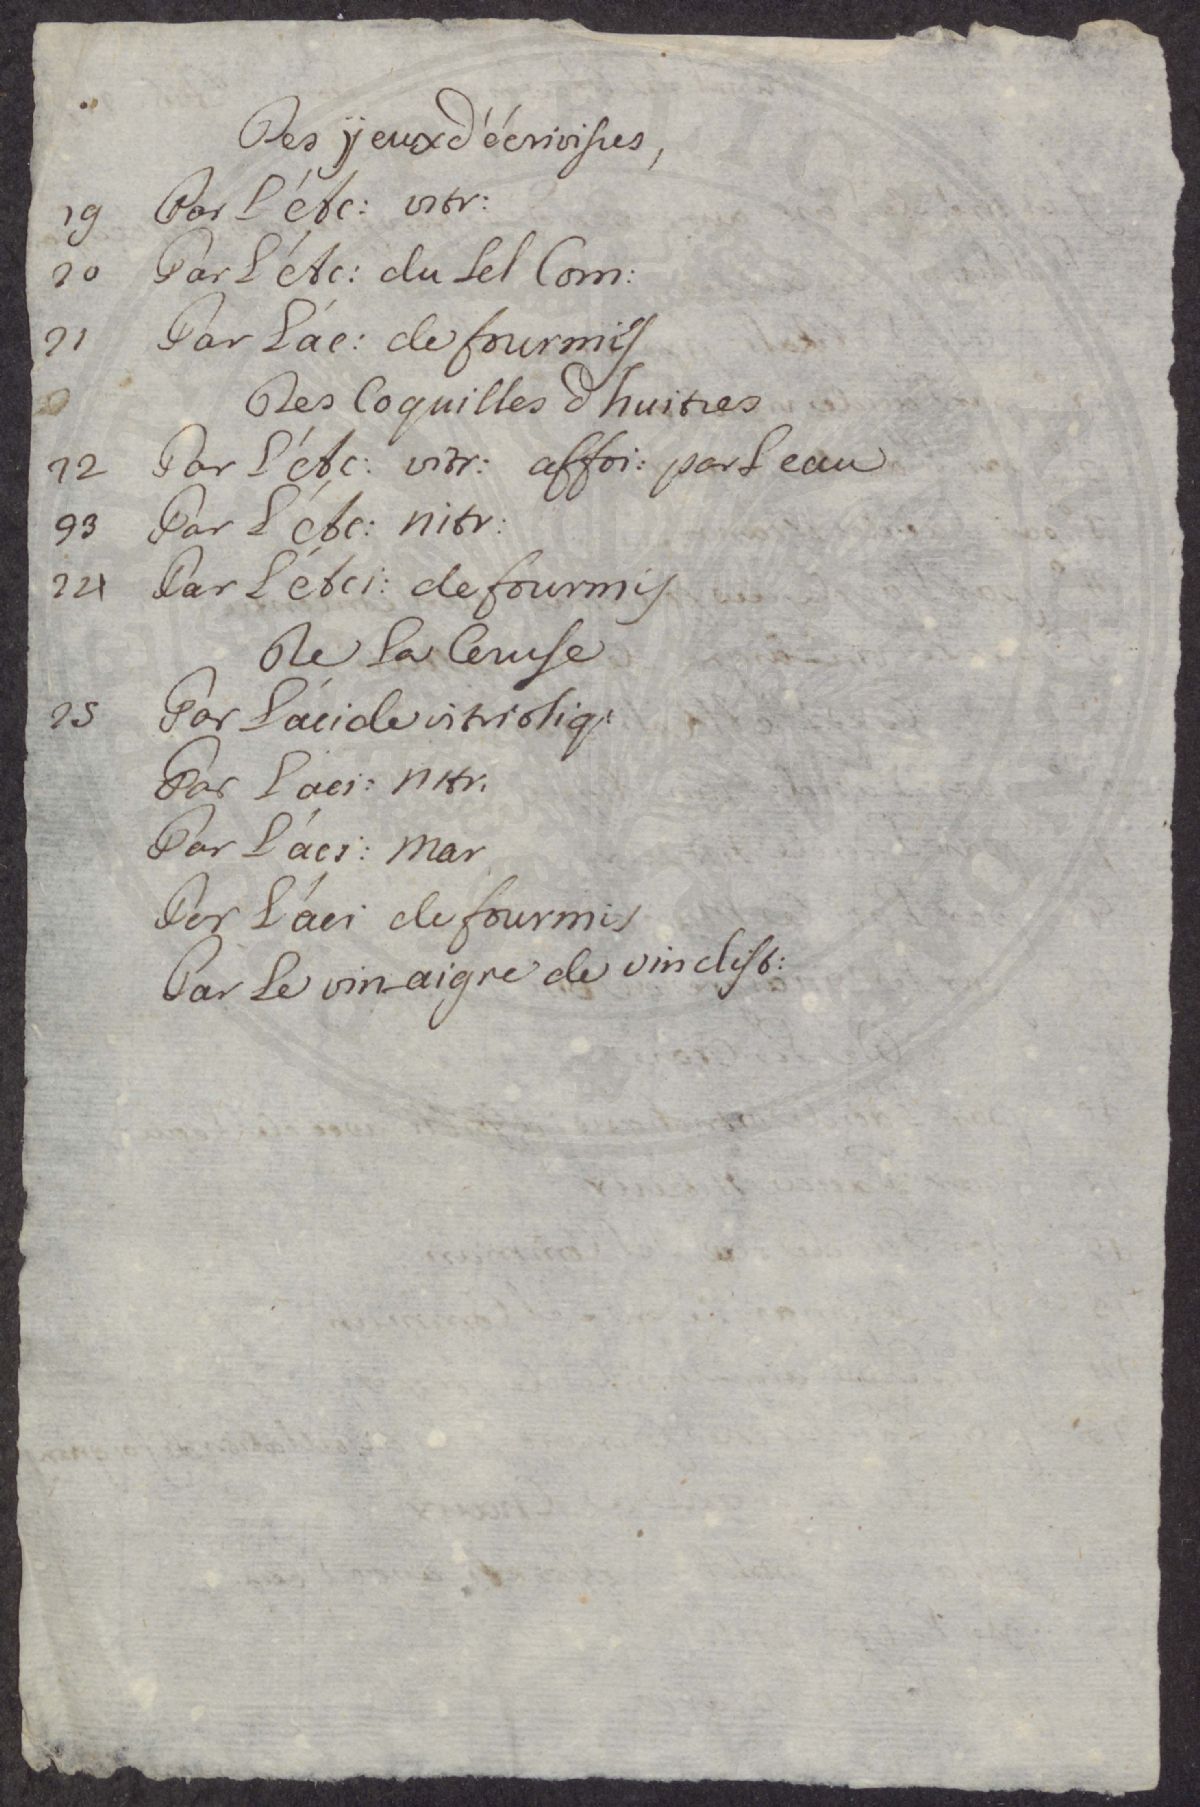 Des ÿeux d'écrivisses,
19 Par L'éte: vitr:
20 Par L'éte: du sel Com:
21 Par L'ác: de fourmis
Des Coquilles d'huitres
22 Par L'éte: vitr: affoi: par Leau
23 Par L'éte: nitr:
24 Par L'étci: de fourmis
De La Ceruse
25 Par L'ácide vitrioliq:
Par L'aci: nitr.
Par L'áci: mar
Par L'áci de fourmis
Par Le vin-aigre de vin dist: